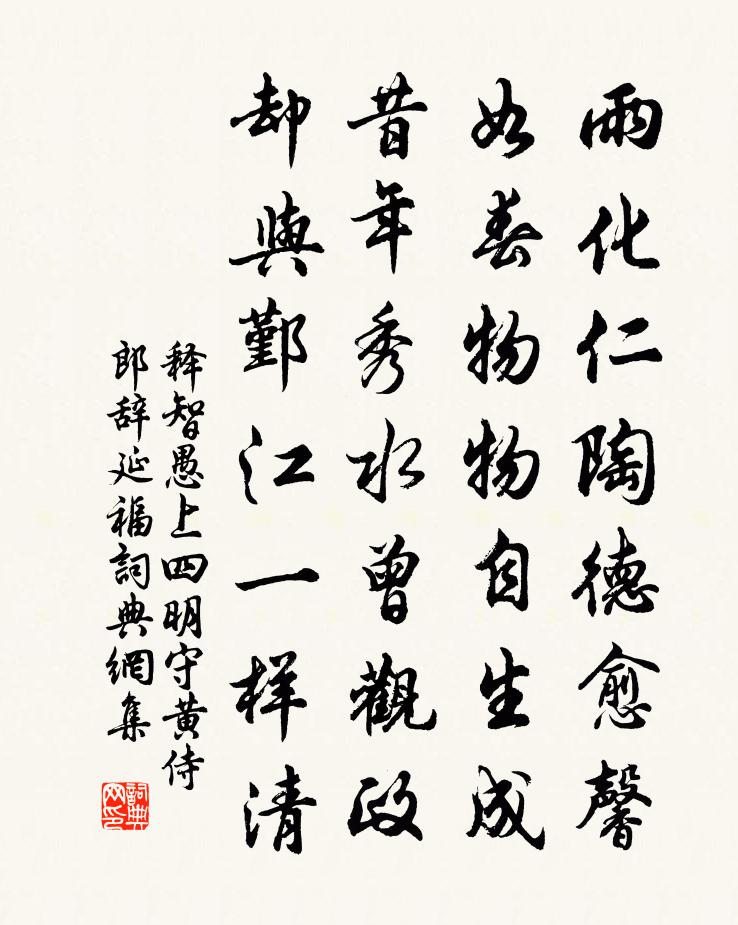 雨化仁陶德愈馨
如春物物自生成
昔年秀水曾觀政
却與鄞江一样清
释智愚上四明守黄侍
郎辞延福詞典網集
詞典網印